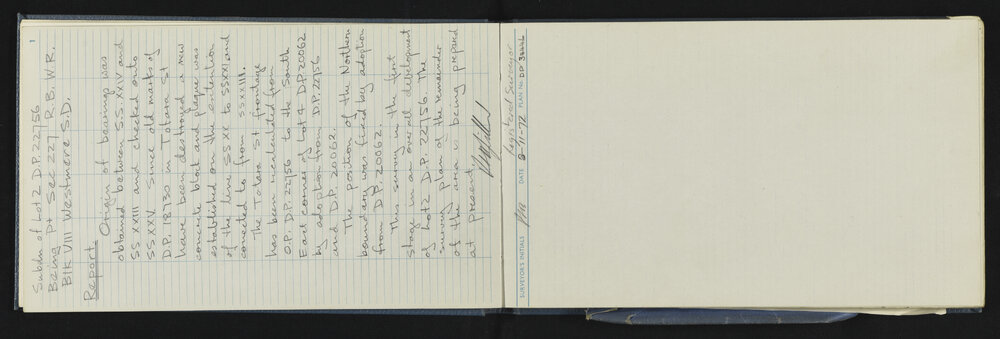 1
Subdn of Lot 2 D.P. 22756
Being Pt Sec 227 R.B. W.R.
Blk VIII Westmere S.D.
Report
Origin of bearings was
obtained between S.S. XXIV and
SS XXIII and checked onto
SS XXV. Since old marks of
D.P. 18730 in Totara St
have been destroyed a new
concrete block and plaque was
established on the extention
of the line SS XX to SS XXI and
conected to from SS XXIII.
The Totara St frontage
has been recalculated from
O.P. D.P. 22756 to the South
East corner of Lot 4 D.P. 20062
by adoption from D.P. 22756
and D.P. 20062.
The position of the Northern
boundary was fixed by adoption
from D.P. 20062.
This survey in the first
stage in an overall development
of Lot 2 D.P. 22756. The
survey plan of the remainder
of the area is being prepared
at present.
Registered Surveyor
SURVEYOR'S INITIALS DATE 8-11-72 PLAN No. DP 36446